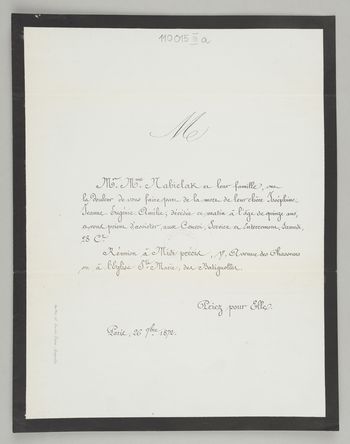 110015 III a
M
Mr. Mme Nabielak et leur famille, ont
la Douleur de vous faire part de la mort de leur chère Joséphine
Jeanne Eugénie Amélie, décédée ce matin à l'âge de quinze ans,
et vous prient d'assister aux Convoi, Service et Enterrement, Samedi
28 Ct.
Réunion à Midi précis, Avenue des Chasseurs
ou à l'Eglise Ste Marie, des Batignolles.
Priez pour Elle.
Paris, 26 9bre 1870.